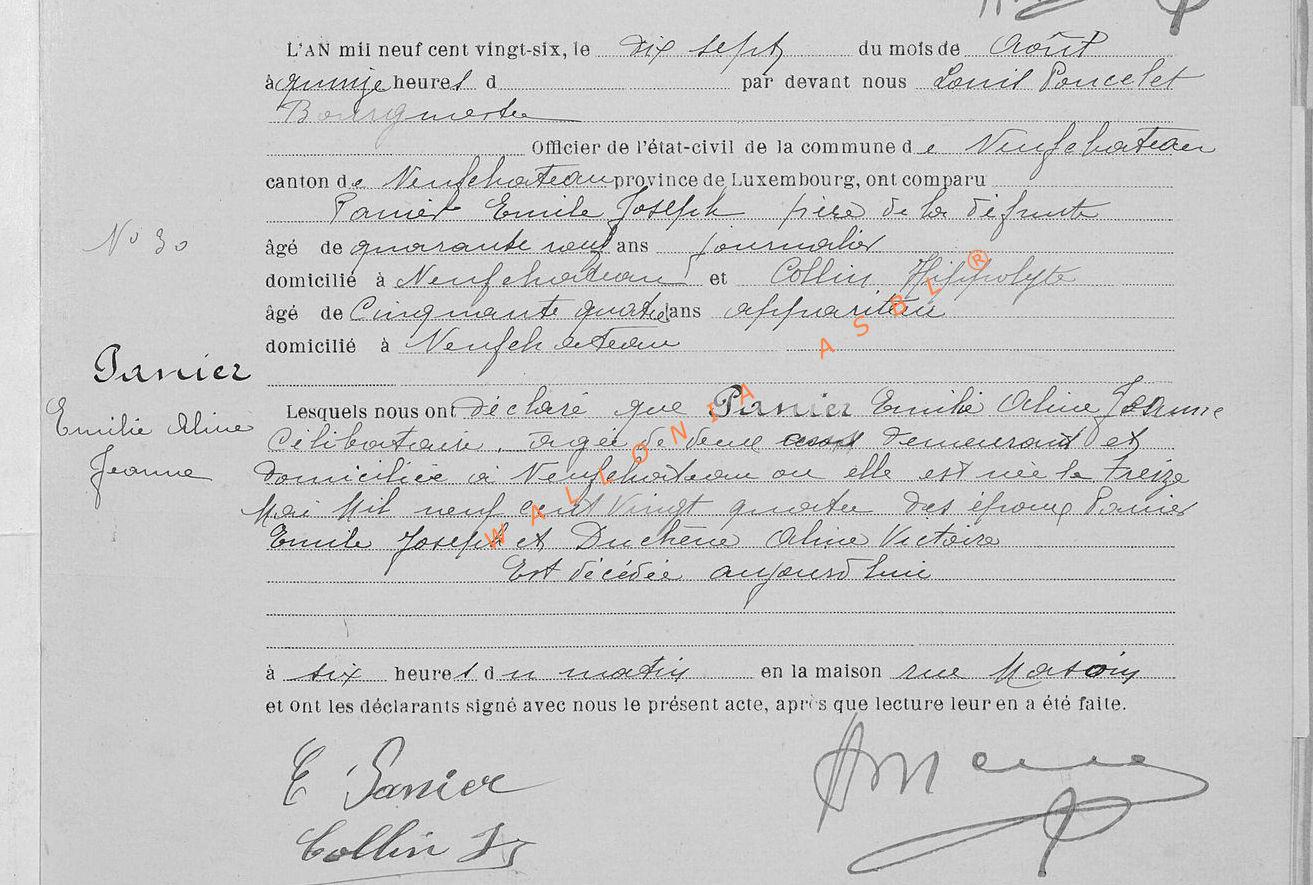 L'AN mil neuf cent vingt-six, le dix sept du mois de Août
à quinze heures d par devant nous Louis Poncelet
Bourgmestre
Officier de l'état-civil de la commune de Neufchateau
canton de Neufchateau province de Luxembourg, ont comparu
Panier Emile Joseph père de la défunte
N° 30
âgé de quarante neuf ans journalier
domicilié à Neufchateau et Collin Hippolyte
âgé de Cinquante quatre ans appariteur
domicilié à Neufchateau
Panier
Emilie Aline
Jeanne
Lesquels nous ont déclaré que Panier Emilie Aline Jeanne
Célibataire, agée de deux ans demeurant et
domiciliée à Neufchateau ou elle est née le treize
Mai Mil neuf cent Vingt quatre des époux Panier
Emile Joseph et Duchène Aline Victoire
Est décédée aujourd'hui
à six heures du matin en la maison rue
et ont les déclarants signé avec nous le présent acte, après que lecture leur en a été faite.
E Panier
Collin
WALLONIA ASBL ®